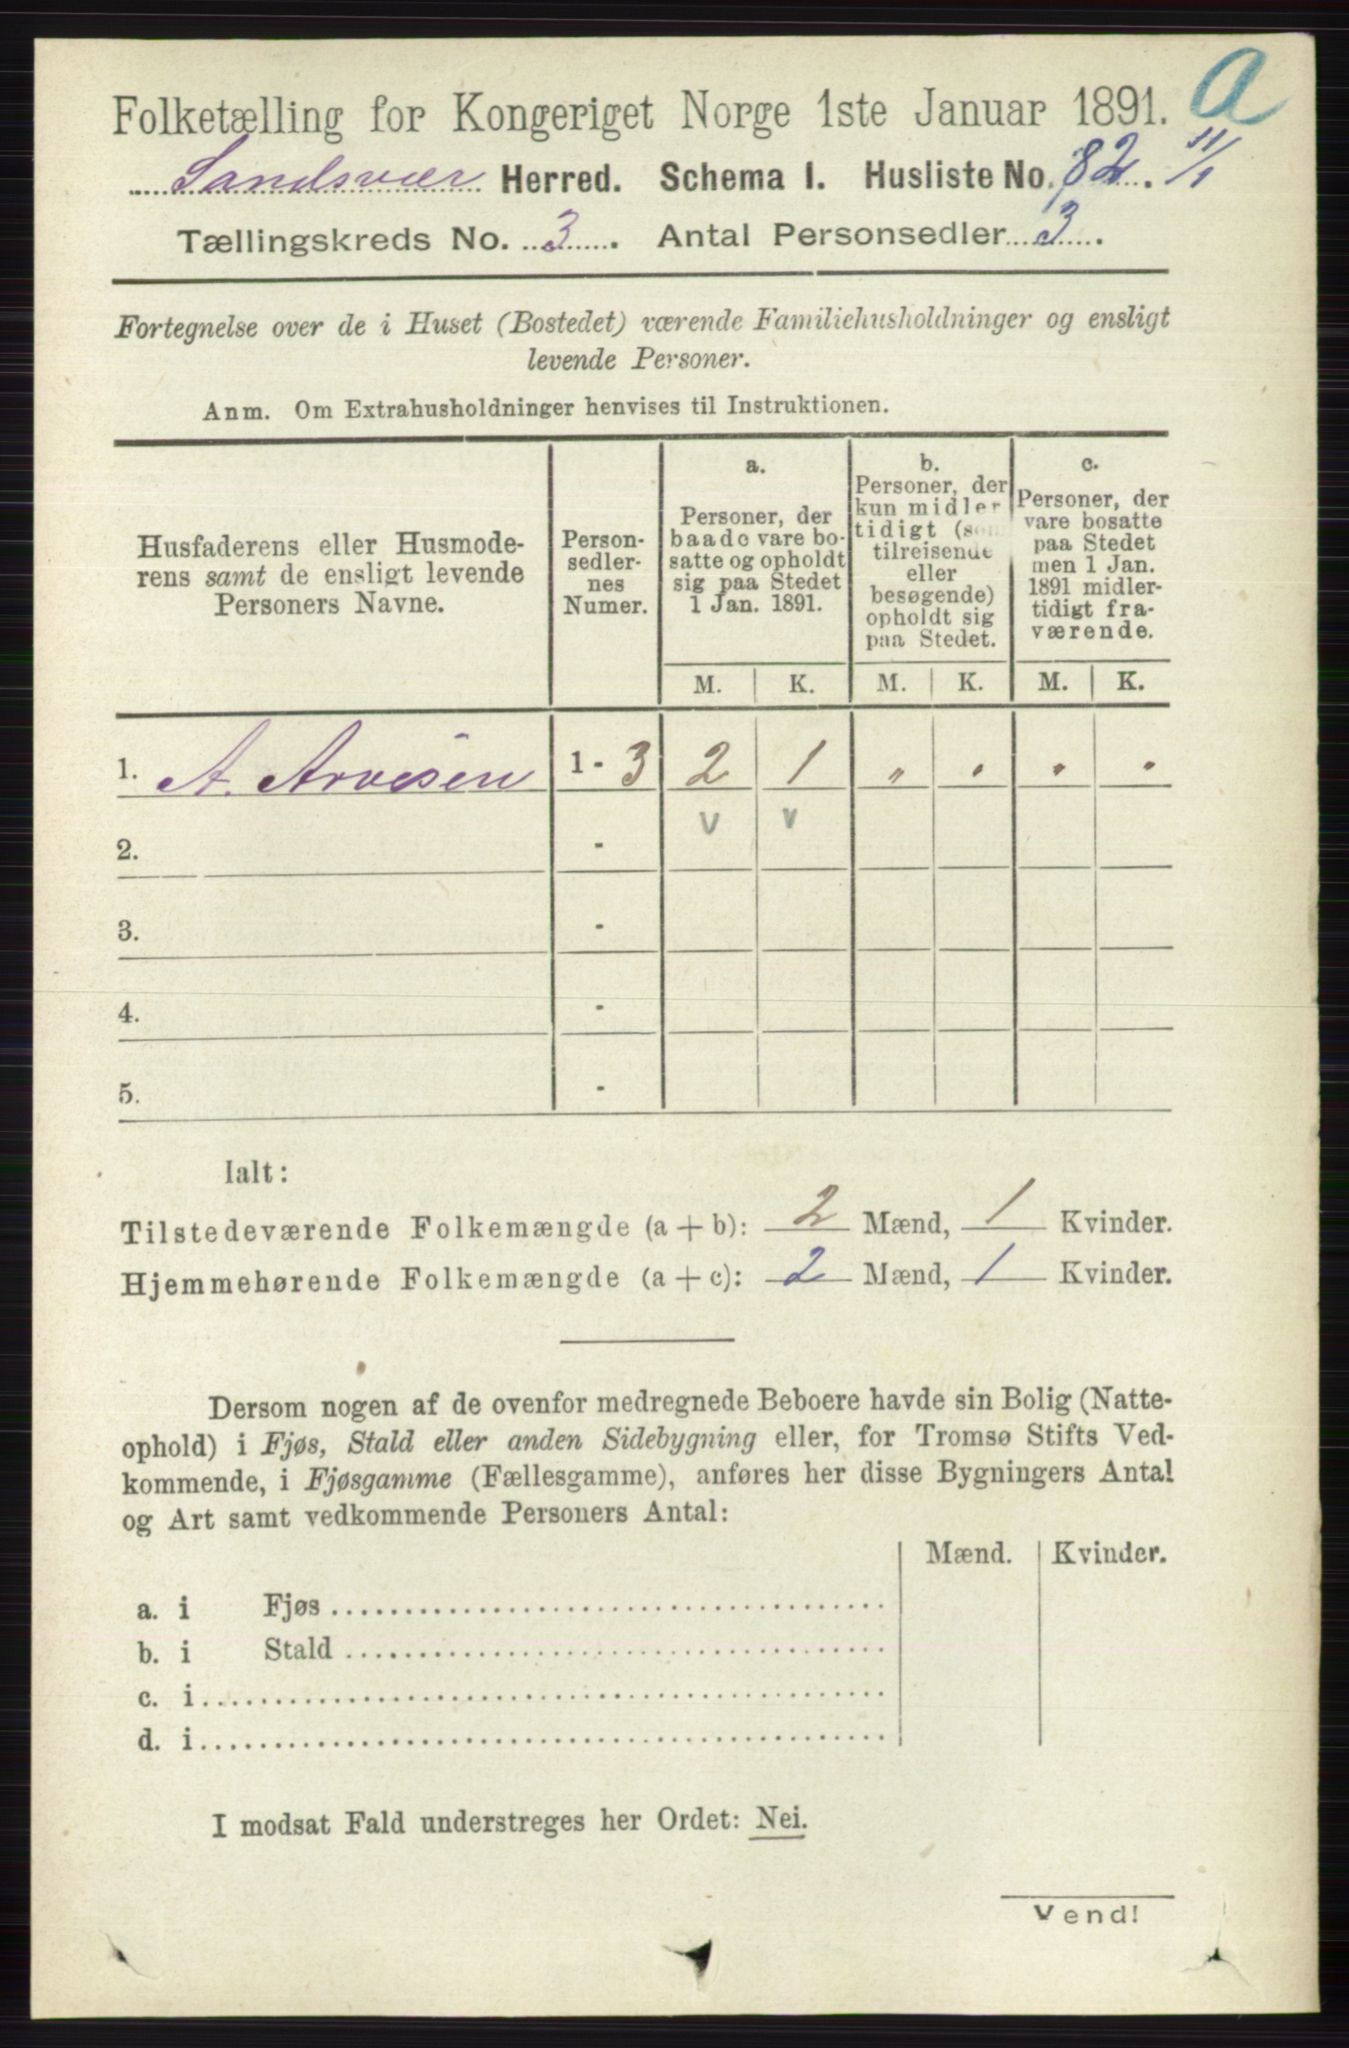 a
Folketælling for Kongeriget Norge 1ste Januar 1891.
Sandsvær Herred. Schema I. Husliste No. 82. 11/1
Tællingskreds No. 3. Antal Personsedler 3.
Fortegnelse over de i Huset (Bostedet) værende Familiehusholdninger og ensligt
levende Personer.
Anm. Om Extrahusholdninger henvises til Instruktionen.
Husfaderens eller Husmode-
rens samt de ensligt levende
Personers Navne.
Person-
sedler-
nes
Numer.
a.
Personer, der
baade vare bo-
satte og opholdt
sig paa Stedet
1 Jan. 1891.
b.
Personer, der
kun midler
tidigt (som
tilreisende
eller
besøgende)
opholdt sig
paa Stedet.
c.
Personer, der
vare bosatte
paa Stedet
men 1 Jan.
1891 midler-
tidigt fra-
værende.
M. K. M. K. M. K.
1. A. Arvesen 1 - 3 2 1 „ . . .
v v
2. -
3. -
4. -
5. -
Ialt:
Tilstedeværende Folkemængde (a + b): 2 Mænd, 1 Kvinder.
Hjemmehørende Folkemængde (a + c): 2 Mænd, 1 Kvinder.
Dersom nogen af de ovenfor medregnede Beboere havde sin Bolig (Natte-
ophold) i Fjøs, Stald eller anden Sidebygning eller, for Tromsø Stifts Ved-
kommende, i Fjøsgamme (Fællesgamme), anføres her disse Bygningers Antal
og Art samt vedkommende Personers Antal:
Mænd. Kvinder.
a. i Fjøs
b. i Stald
c. i
d. i
I modsat Fald understreges her Ordet: Nei.
Vend!